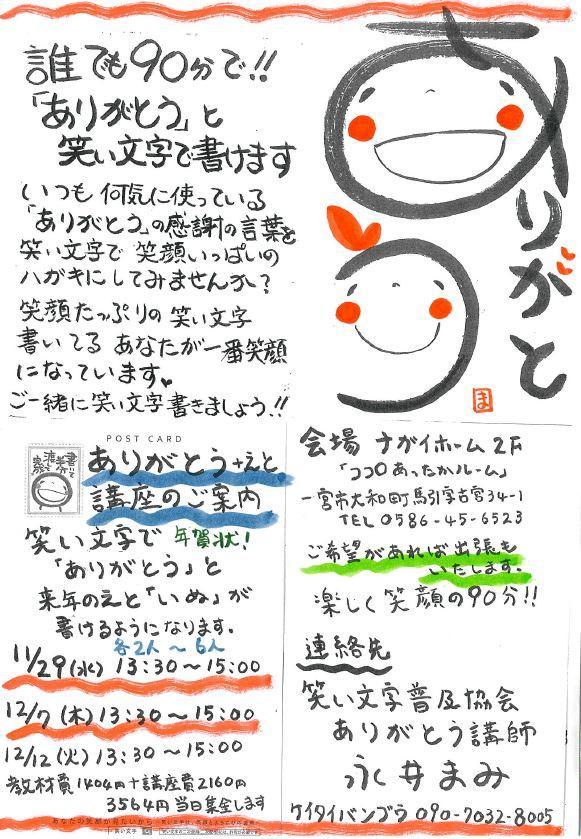 誰でも90分で!!
「ありがとう」と
笑い文字で書けます
いつも何気に使っている
「ありがとう」の感謝の言葉を
笑い文字で 笑顔いっぱいの
ハガキにしてみませんか?
笑顔たっぷりの笑い文字
書いてる あなたが一番笑顔
になっています♥
ご一緒に笑い文字書きましょう!!
ありがとう
ま
POST CARD
ありがとう+えと
講座のご案内
笑い文字で 年賀状!
「ありがとう」と
来年のえと「いぬ」が
書けるようになります。
各2人〜6人
11/29(水) 13:30〜15:00
12/7(木) 13:30〜15:00
12/12(火) 13:30〜15:00
教材費1404円+講座費2160円
3564円 当日集金します
あなたの笑顔が見たいから
笑い文字
会場 ナガイホーム2F
「ココロあったかルーム」
一宮市大和町馬引字古宮34-1
TEL 0586-45-6523
ご希望があれば出張も
いたします。
楽しく笑顔の90分!!
連絡先
笑い文字普及協会
ありがとう講師
永井まみ
ケイタイバンゴウ 090-7032-8005